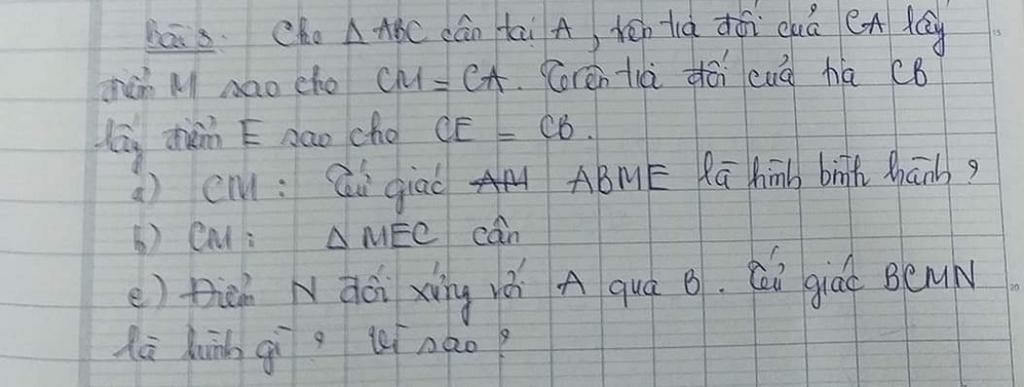 Bài 3. Cho Δ ABC cân tại A, trên tia đối của CA lấy
điểm M sao cho CM = CA. Trên tia đối của tia CB
lấy điểm E sao cho CE = CB.
a) CM: Tứ giác ABME là hình bình hành?
b) CM: Δ MEC cân
c) Điểm N đối xứng với A qua B. Tứ giác BCMN
là hình gì? Vì sao?